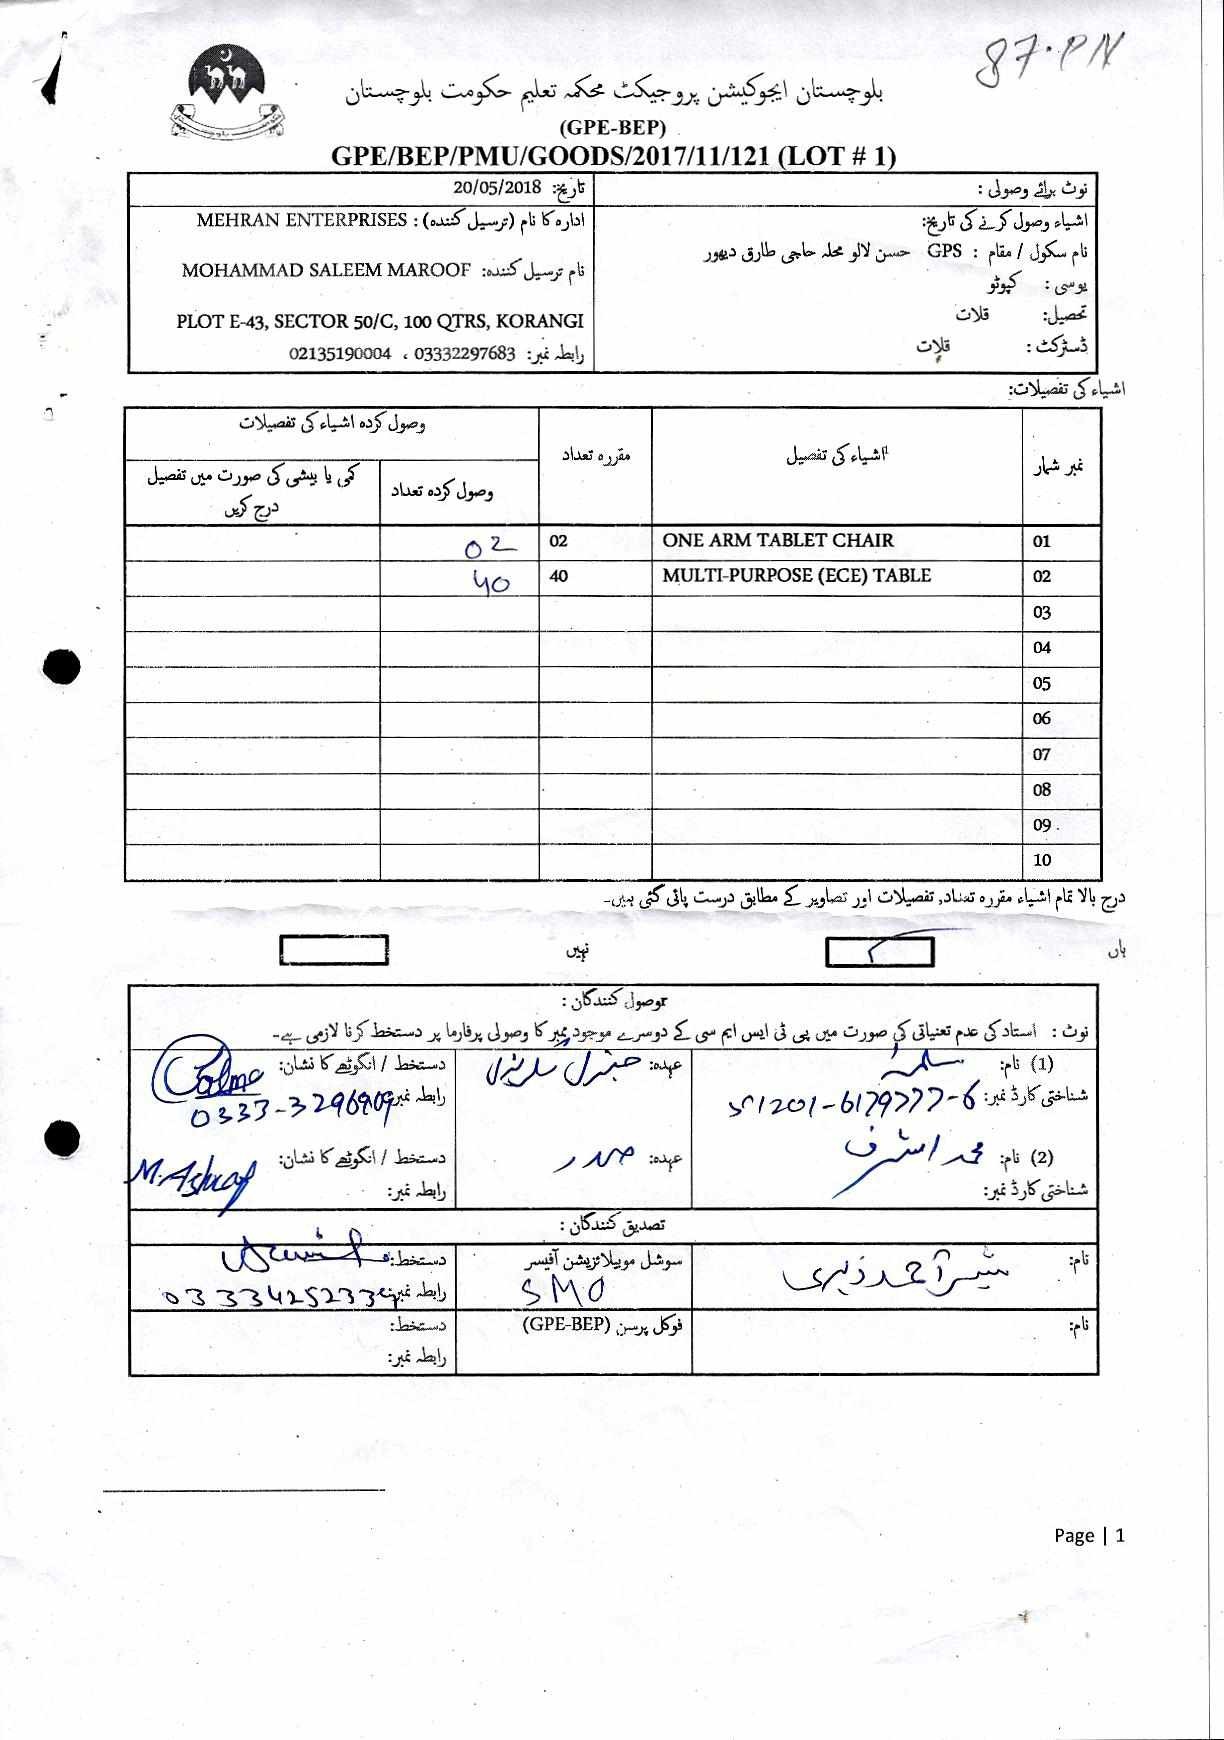 87.PN
بلوچستان ایجوکیشن پروجیکٹ محکمہ تعلیم حکومت بلوچستان
(GPE-BEP)
GPE/BEP/PMU/GOODS/2017/11/121 (LOT # 1)
نوٹ برائے وصولی :
تاریخ: 20/05/2018
اشیاء وصول کرنے کی تاریخ:
نام سکول / مقام : GPS حسن لالو محلہ حاجی طارق دیھور
یو سی : کپوٹو
تحصیل: قلات
ڈسٹرکٹ : قلات
ادارہ کا نام (ترسیل کنندہ) : MEHRAN ENTERPRISES
نام ترسیل کنندہ: MOHAMMAD SALEEM MAROOF
PLOT E-43, SECTOR 50/C, 100 QTRS, KORANGI
رابطہ نمبر: 03332297683 ، 02135190004
اشیاء کی تفصیلات:
نمبر شمار
اشیاء کی تفصیل
مقررہ تعداد
وصول کردہ اشیاء کی تفصیلات
وصول کردہ تعداد
کمی یا بیشی کی صورت میں تفصیل
درج کریں
01 ONE ARM TABLET CHAIR 02 02
02 MULTI-PURPOSE (ECE) TABLE 40 40
03
04
05
06
07
08
09
10
درج بالا تمام اشیاء مقررہ تعداد, تفصیلات اور تصاویر کے مطابق درست پائی گئی ہیں۔
ہاں نہیں
وصول کنندگان :
نوٹ : استاد کی عدم تعیناتی کی صورت میں پی ٹی ایس ایم سی کے دوسرے موجود ممبر کا وصولی پرفارما پر دستخط کرنا لازمی ہے۔
(1) نام: سلمہ
شناختی کارڈ نمبر:
عہدہ: جنرل
دستخط / انگوٹھے کا نشان: Salma
رابطہ نمبر:
(2) نام: محمد اشرف
شناختی کارڈ نمبر:
عہدہ: صدر
دستخط / انگوٹھے کا نشان: M. Ashraf
رابطہ نمبر:
تصدیق کنندگان :
نام:
سوشل موبیلائزیشن آفیسر
SMO
دستخط:
رابطہ نمبر:
نام:
فوکل پرسن (GPE-BEP)
دستخط:
رابطہ نمبر:
Page | 1